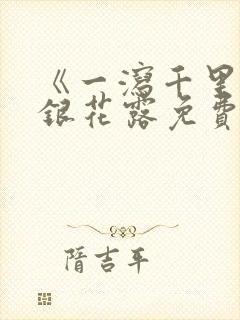 《一瀉千里
銀花露免費
隋吉平